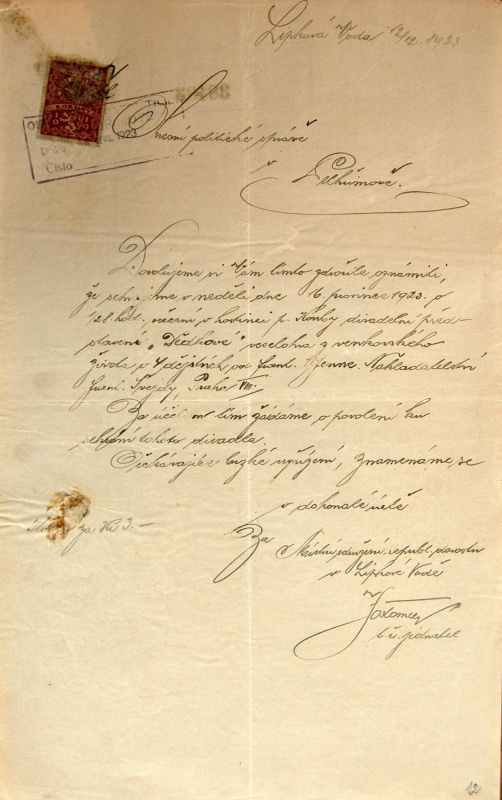 Lipková Voda 12/12. 1923
Slavné politické správě
v
Pelhřimově.
Dovolujeme si Vám tímto zdvořile oznámiti,
že sehrajeme v neděli dne 16. prosince 1923. o
1/28 hod. večerní v hostinci p. Kouby divadelní před-
stavení „Dědkové" veselohra z venkovského
života o 4 dějstvích, od Frant. Nakladatelství
Frant. Švejdy, Praha VIII.
Za účelem tím žádáme o povolení ku
sehrání tohoto divadla.
Očekávajíce brzké vyřízení, znamenáme se
v dokonalé úctě
Za Místní sdružení republ. dorostu
v Lipkové Vodě
t. č. jednatel
Kčs 3.-
1923
Číslo
12